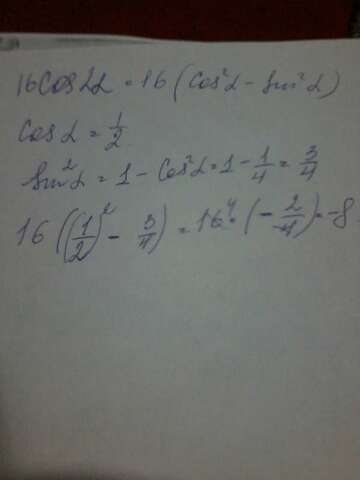 16cos2α = 16 (cos²α - sin²α)
cos α = 1/2
sin²α = 1 - cos²α = 1 - 1/4 = 3/4
16 ((1/2)² - 3/4) = 16⁴ · (- 2/4) = -8